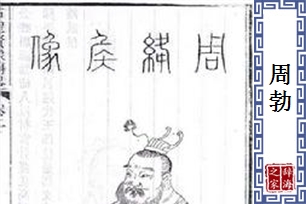 周絳侯像
周勃
辞海之家